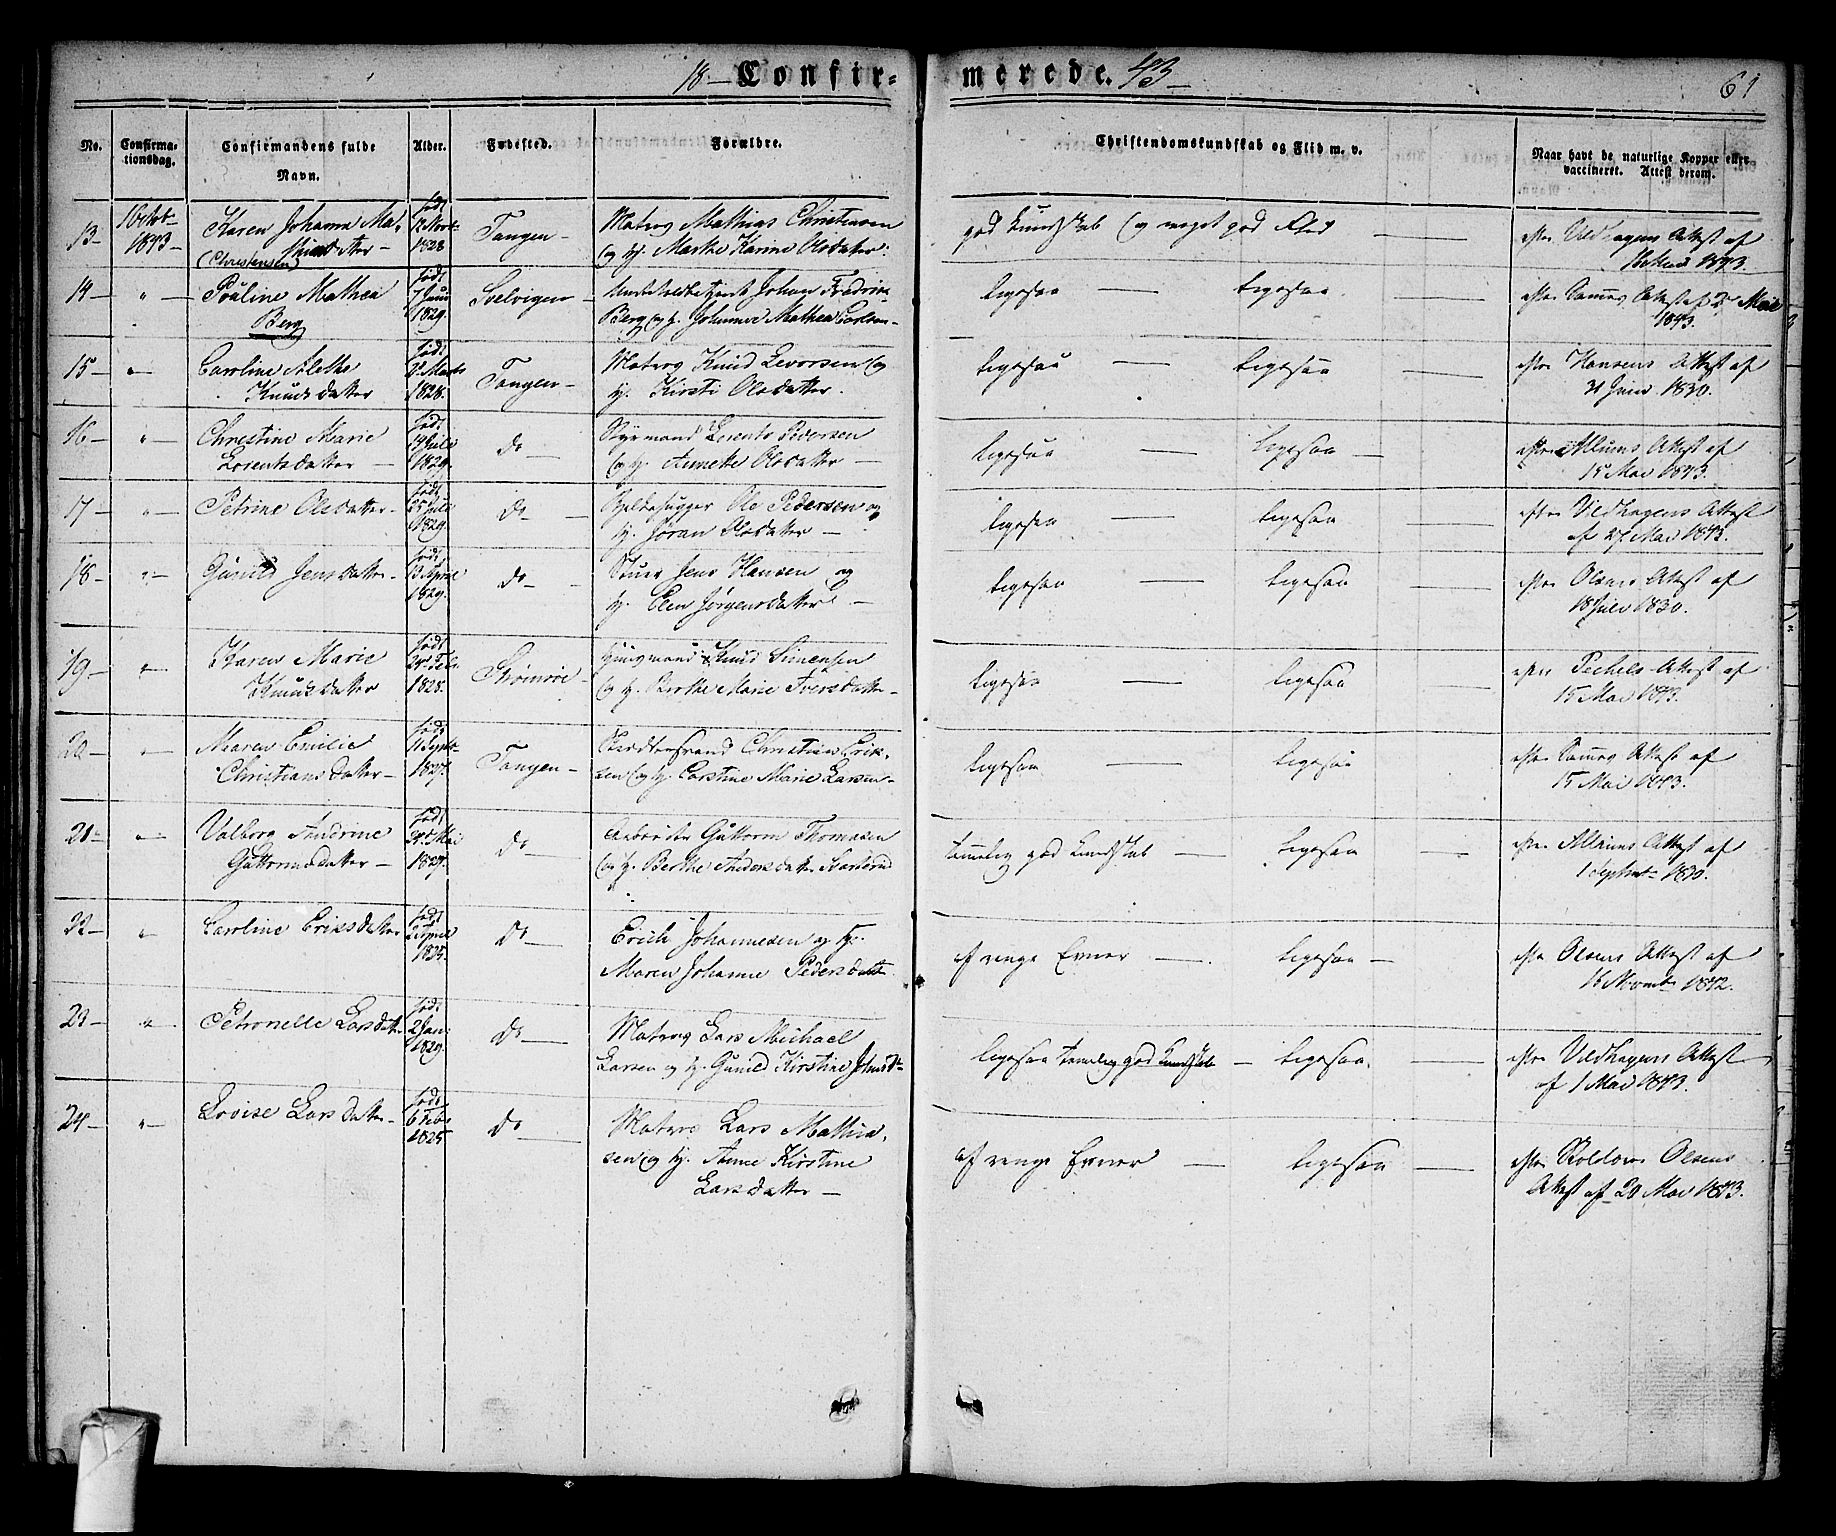 18- Confir- merede. 43-
61
No.
Confirma-
tionsdag.
Confirmandens fulde
Navn.
Alder.
Fødested.
Forældre.
Christendomskundskab og Flid m. v.
Naar havt de naturlige Kopper eller
vaccineret. Attest derom.
13-
1 Octob.
1843-
Karen Johanne Ma-
thiasdatter
(Christensen)
født
1828
Tangen-
Matros Mathias Christensen
og h. Marthe Karine Olsdatter.
god Kundskab og meget god Flid
efter Vildhagens Attest af
1843.
14-
"
Pauline Mathea
Berg
født
7 Juni
1829.
Svelvigen-
Johan Fredrik
Berg og h. Johanne Mathea Carlsen-
ligesaa — ligesaa.
efter Sammes Attest af 2 Mai
1843.
15-
"
Caroline Alethe
Knudsdatter
født
Marts
1828.
Tangen-
Matros Knud Levorsen og
h. Kirsti Olsdatter.
ligesaa — ligesaa —
efter Hansens Attest af
Juni 1830.
16-
"
Christine Marie
Lorentsdatter —
født
14 Juli
1829.
do —
Styrmand Lorents Pedersen
og h. Annette Olsdatter —
ligesaa — ligesaa —
efter Attest af
15 Mai 1843.
17-
"
Petrine Olsdatter-
født
25 Juli
1829.
do —
Ole Pedersen og
h. Joran Olsdatter —
ligesaa — ligesaa —
efter Vildhagens Attest
af 27 Mai 1843.
18-
"
Gunild Jensdatter-
født
13 April
1829.
do —
Jens Hansen og
h. Elen Jørgensdatter —
ligesaa — ligesaa —
efter Olsens Attest af
18 Juli 1830.
19-
"
Karen Marie
Knudsdatter
født
Feb.
1828.
Strømsøe-
Knud Simensen
og h. Berthe Marie Iversdatter-
ligesaa — ligesaa —
efter Pechels Attest af
15 Mai 1843.
20-
"
Maren Emilie
Christiansdatter-
født
11 Septb.
1827.
Tangen-
Christian Erik-
sen og h. Carstine Marie Larsen-
ligesaa — ligesaa
efter Sammes Attest af
15 Mai 1843.
21-
"
Valborg Andrine
Guttormsdatter —
født
Mai
1827.
do —
Guttorm Thomasen
og h. Berthe Andersdatter
temmelig god Kundskab — ligesaa —
efter Attest af
1 Septemb.
22-
"
Caroline Eriksdatter
født
April
1825.
do —
Erich Johannesen og h.
Maren Johanne Pedersdatt.
af ringe Evner — ligesaa —
efter Olsens Attest af
16 Novemb. 1842.
23-
"
Petronelle Larsdatter
født
2 Jan:
1829.
do —
Matros Lars Michael
Larsen og h. Gunild Kirstine
ligesaa temmelig god Kundskab — ligesaa. —
efter Vildhagens Attest
af 1 Mai 1843.
24-
"
Lovise Larsdatter-
født
6 Feb.
1825.
do —
Matros Lars Mathia-
sen og h. Anne Kirstine
Larsdatter —
af ringe Evner — ligesaa —
efter Olsens
Attest af 20 Mai 1843.